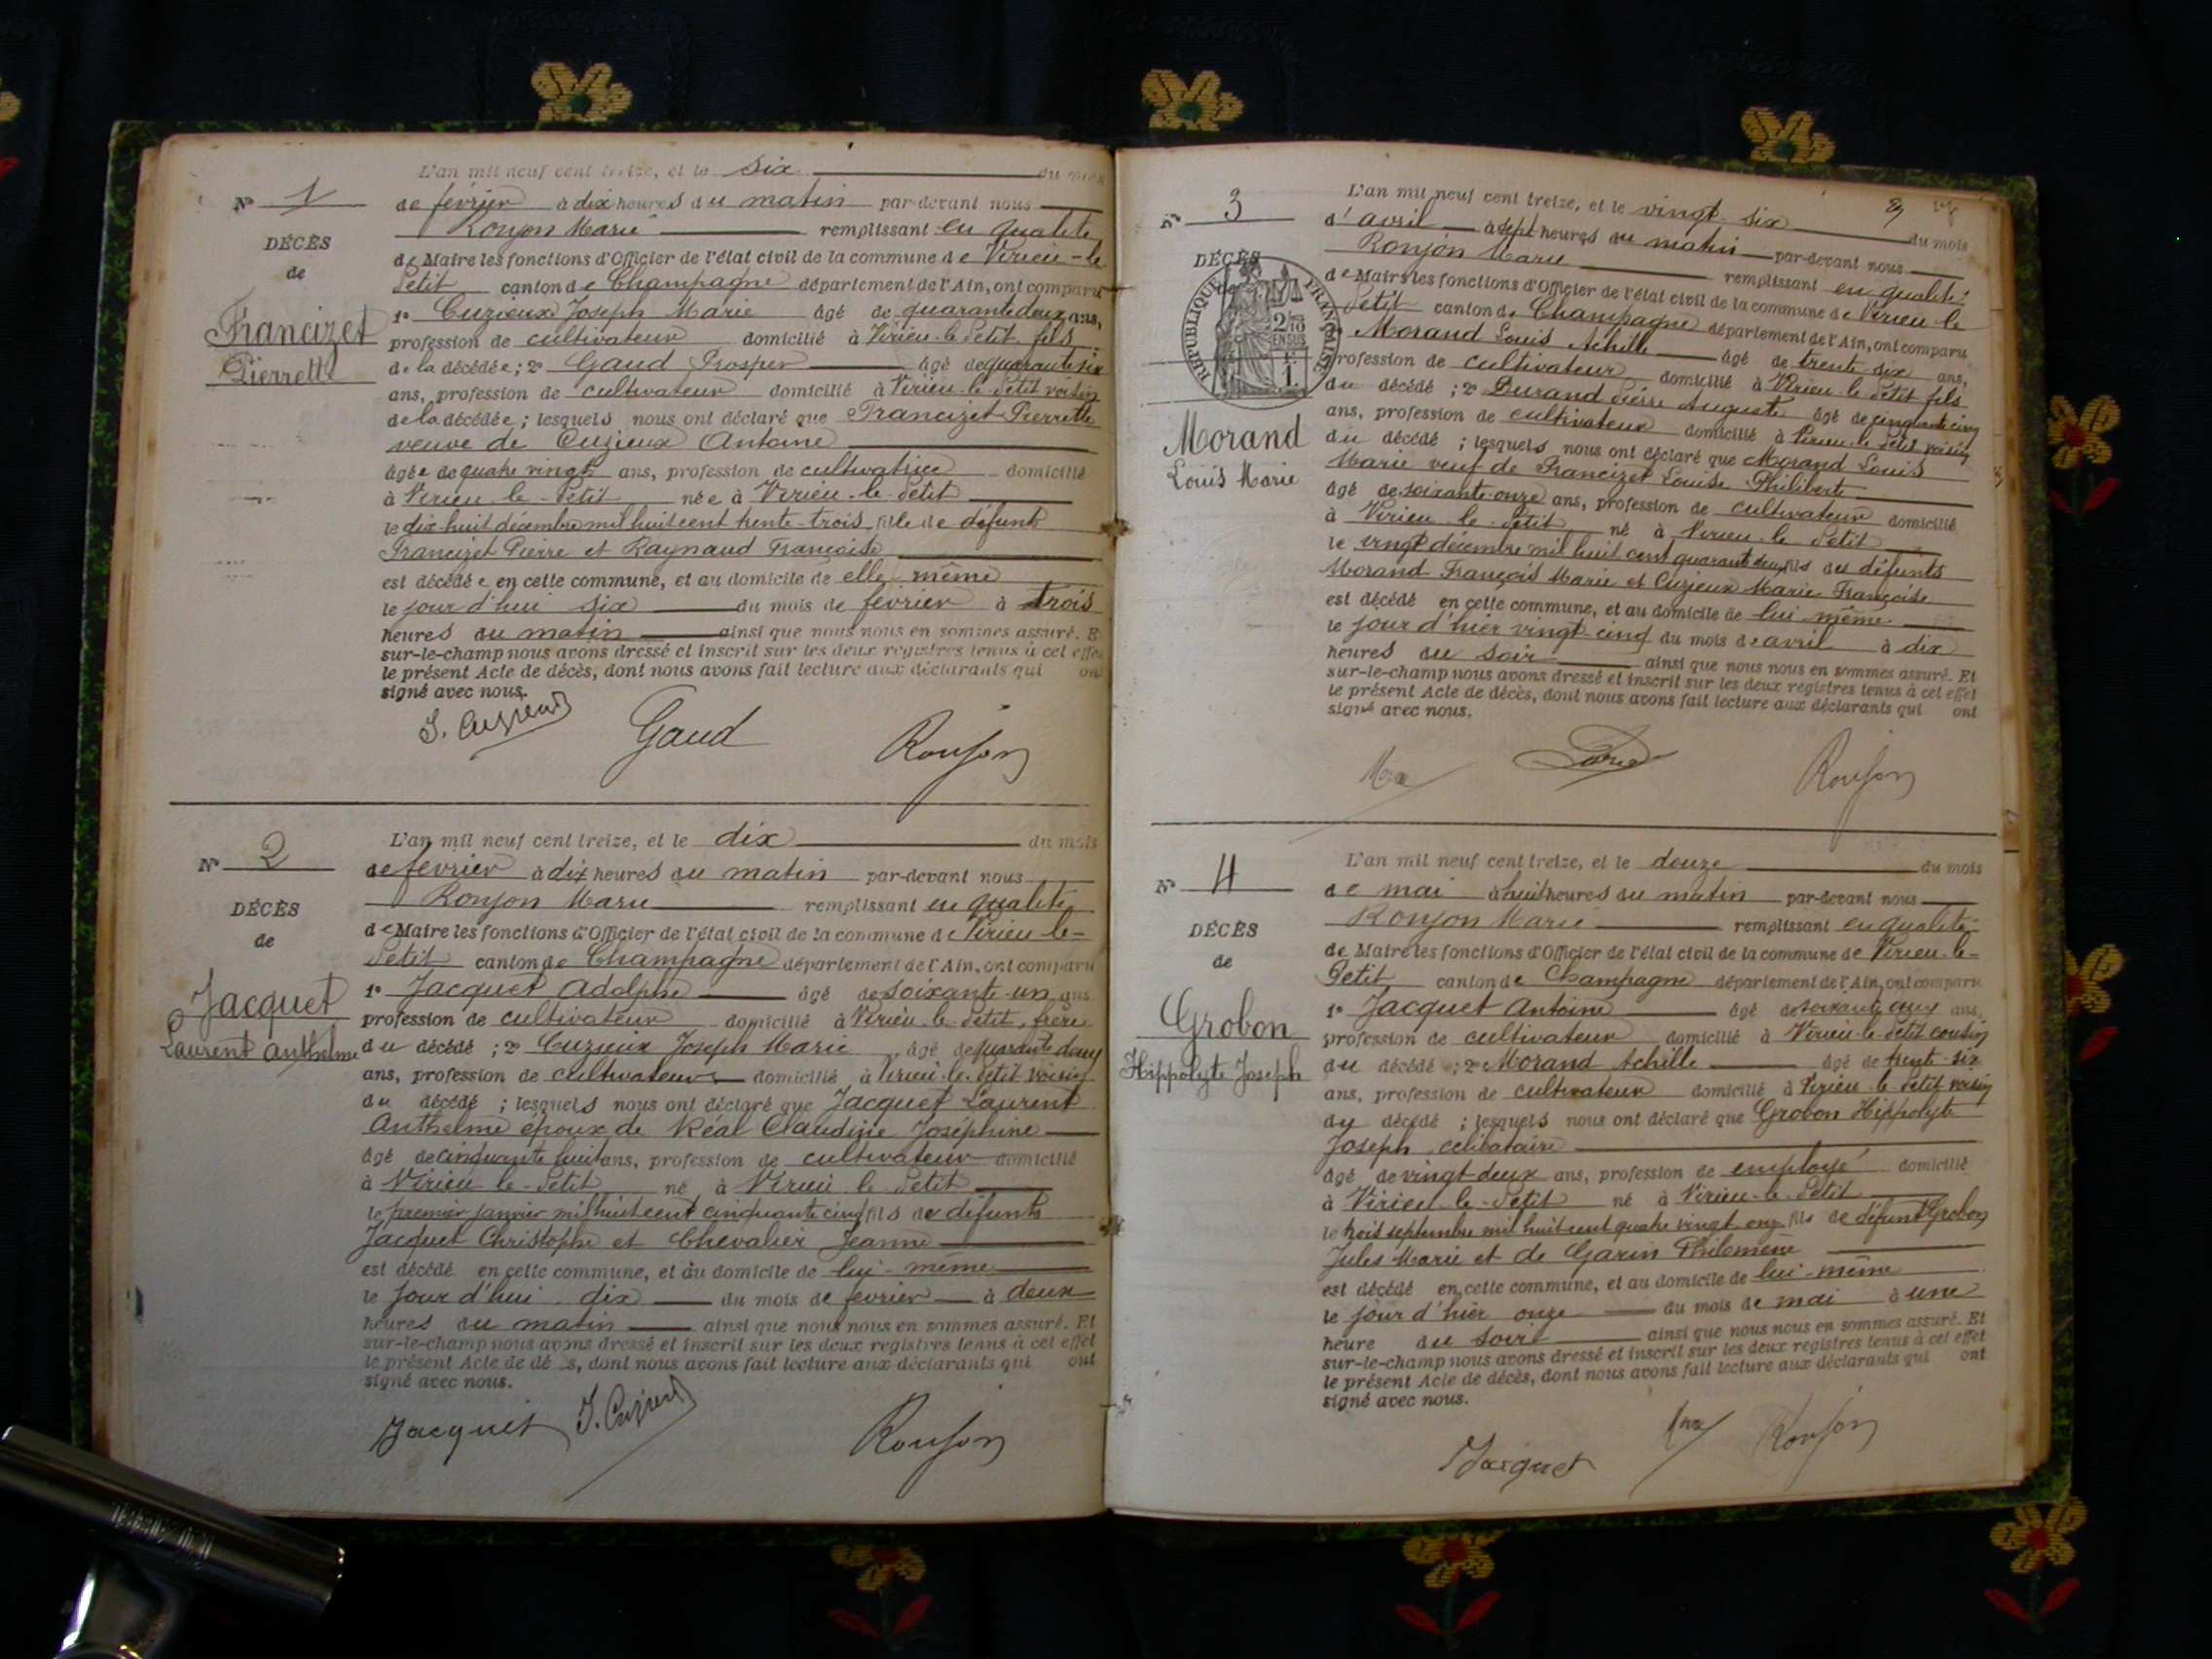 L'an mil neuf cent treize, et le six du mois
N° 1
de février à dix heures du matin par-devant nous
Roujon Marie remplissant en qualité
DÉCÈS
de Maire les fonctions d'Officier de l'état civil de la commune de Virieu-le
de
Petit canton de Champagne département de l'Ain, ont comparu
Francizet
1° Cuzieux Joseph Marie âgé de quarante deux ans,
profession de cultivateur domicilié à Virieu-le-Petit fils
Pierrette
de la décédée; 2° Gaud Prosper âgé de quarante six
ans, profession de cultivateur domicilié à Virieu-le-Petit voisin
de la décédée; lesquels nous ont déclaré que Francizet Pierrette
veuve de Cuzieux Antoine
âgée de quatre vingts ans, profession de cultivatrice domicilié
à Virieu-le-Petit née à Virieu-le-Petit
le dix huit décembre mil huit cent trente-trois fille de défunts
Francizet Pierre et Raynaud Françoise
est décédée en cette commune, et au domicile de elle même
le jour d'hui six du mois de février à trois
heures du matin ainsi que nous nous en sommes assuré. E
sur-le-champ nous avons dressé et inscrit sur les deux registres tenus à cet effe
le présent Acte de décès, dont nous avons fait lecture aux déclarants qui on
signé avec nous.
J. Cuzieux Gaud Roujon
L'an mil neuf cent treize, et le dix du mois
N° 2
de février à dix heures du matin par-devant nous
Roujon Marie remplissant en qualité
DÉCÈS
de Maire les fonctions d'Officier de l'état civil de la commune de Virieu-le-
de
Petit canton de Champagne département de l'Ain, ont comparu
Jacquet
1° Jacquet Adolphe âgé de soixante-un ans
profession de cultivateur domicilié à Virieu-le-Petit, frère
Laurent Anthelme
du décédé; 2° Cuzieux Joseph Marie âgé de quarante deux
ans, profession de cultivateur domicilié à Virieu-le-Petit voisin
du décédé; lesquels nous ont déclaré que Jacquet Laurent
Anthelme époux de Réal Claudine Joséphine
âgé de cinquante huit ans, profession de cultivateur domicilié
à Virieu-le-Petit né à Virieu le Petit
le premier janvier mil huit cent cinquante cinq fils de défunts
Jacquet Christophe et Chevalier Jeanne
est décédé en cette commune, et au domicile de lui-même
le jour d'hui dix du mois de février à deux
heures du matin ainsi que nous nous en sommes assuré. Et
sur-le-champ nous avons dressé et inscrit sur les deux registres tenus à cet effet
le présent Acte de dé s, dont nous avons fait lecture aux déclarants qui ont
signé avec nous.
Jacquet J. Cuzieux Roujon
89
L'an mil neuf cent treize, et le vingt-six du mois
N° 3
d'avril à sept heures du matin par-devant nous
Roujon Marie remplissant en qualité
DÉCÈS
de
de Maire les fonctions d'Officier de l'état civil de la commune de Virieu-le
RÉPUBLIQUE FRANÇAISE
2/10 EN SUS
Petit canton de Champagne département de l'Ain, ont comparu
Morand Louis Achille âgé de trente six ans,
profession de cultivateur domicilié à Virieu-le-Petit fils
du décédé; 2° Durand Pierre Auguste âgé de cinquante cinq
Morand
Louis Marie
ans, profession de cultivateur domicilié à Virieu-le-Petit voisin
du décédé; lesquels nous ont déclaré que Morand Louis
Marie veuf de Francizet Louise Philiberte
âgé de soixante-onze ans, profession de cultivateur domicilié
à Virieu-le-Petit né à Virieu-le-Petit
le vingt décembre mil huit cent quarante deux fils des défunts
Morand François Marie et Cuzieux Marie Françoise
est décédé en cette commune, et au domicile de lui-même
le jour d'hier vingt-cinq du mois de avril à dix
heures du soir ainsi que nous nous en sommes assuré. Et
sur-le-champ nous avons dressé et inscrit sur les deux registres tenus à cet effet
le présent Acte de décès, dont nous avons fait lecture aux déclarants qui ont
signé avec nous.
Roujon
L'an mil neuf cent treize, et le douze du mois
N° 4
de mai à huit heures du matin par-devant nous
Roujon Marie remplissant en qualité
DÉCÈS
de Maire les fonctions d'Officier de l'état civil de la commune de Virieu-le-
de
Petit canton de Champagne département de l'Ain, ont comparu
Grobon
1° Jacquet Antoine âgé de soixante ans,
profession de cultivateur domicilié à Virieu-le-Petit cousin
Hippolyte Joseph
du décédé; 2° Morand Achille âgé de trente-six
ans, profession de cultivateur domicilié à Virieu-le-Petit voisin
du décédé; lesquels nous ont déclaré que Grobon Hippolyte
Joseph célibataire
âgé de vingt-deux ans, profession de employé domicilié
à Virieu-le-Petit né à Virieu-le-Petit
le trois septembre mil huit cent quatre vingt onze fils de défunt Grobon
Jules Marie et de Garin Philomène
est décédé en cette commune, et au domicile de lui-même
le jour d'hier onze du mois de mai à une
heure du soir ainsi que nous nous en sommes assuré. Et
sur-le-champ nous avons dressé et inscrit sur les deux registres tenus à cet effet
le présent Acte de décès, dont nous avons fait lecture aux déclarants qui ont
signé avec nous.
Jacquet Roujon